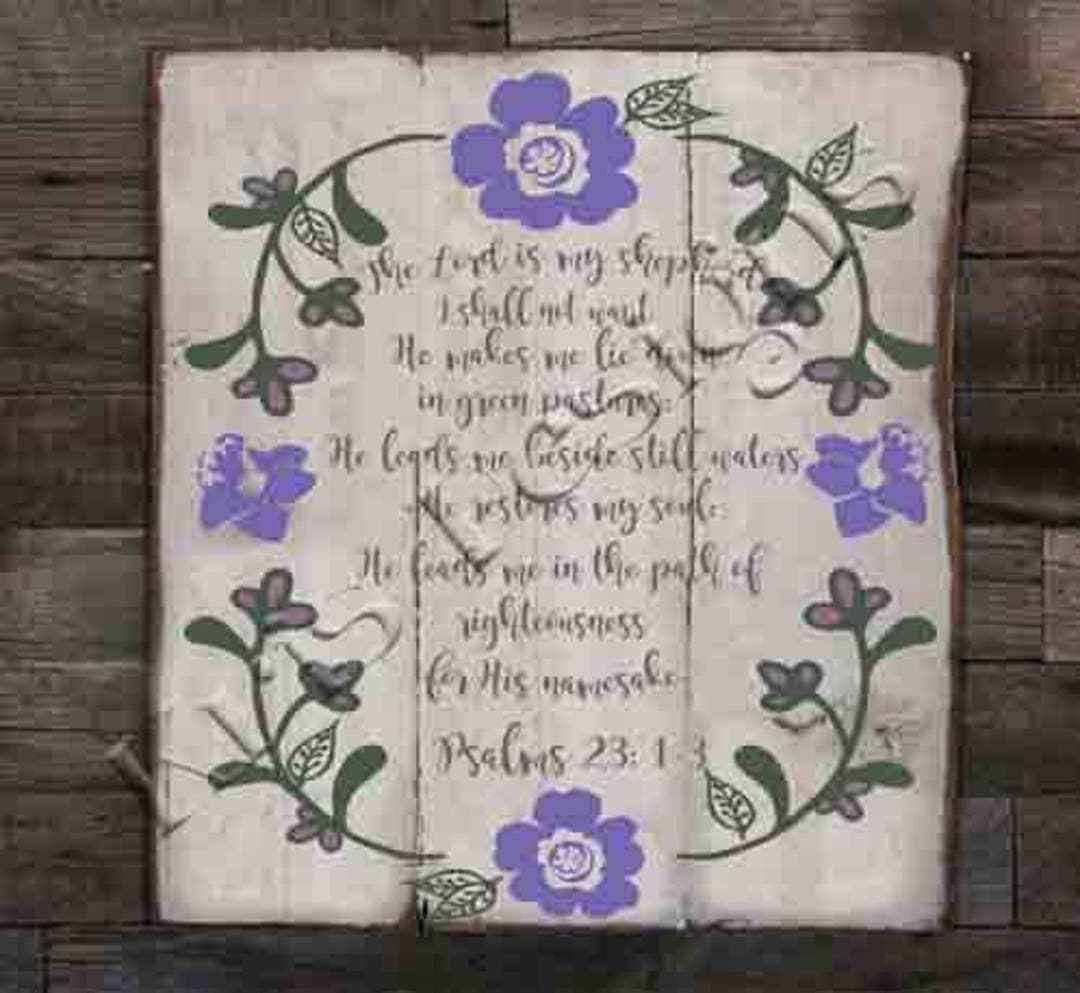 The Lord is my shepherd
I shall not want
He makes me lie down
in green pastures:
He leads me beside still waters
He restores my soul:
He leads me in the path of
righteousness
for His namesake
Psalms 23: 1-3